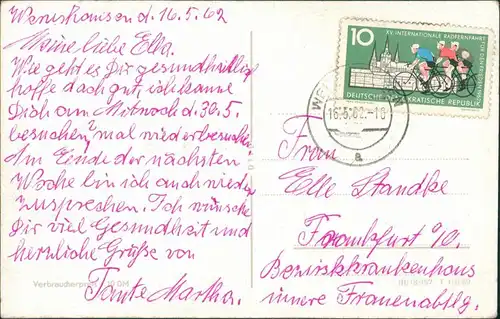 Wernshausen d. 16.5.62
Meine liebe Elka.
Wie geht es Dir gesundheitlig
hoffe doch gut, ich kann
Dich am Mitwoch d. 30.5.
besuchen? mal wieder besuchen
Am Ende der nächsten
Woche bin ich auch wieder
zusprechen. Ich wünsche
Dir viel Gesundheit und
herzliche Grüße von
Tante Martha.
Verbraucherpreis 0,20 DM
10
XV. INTERNATIONALE RADFERNFAHRT
FÜR DEN FRIEDEN
DEUTSCHE DEMOKRATISCHE REPUBLIK
16.5.62.-16
a
Frau
Elle Standke
Frankfurt O/O.
Bezirkskrankenhaus
innere Frauenabtlg.